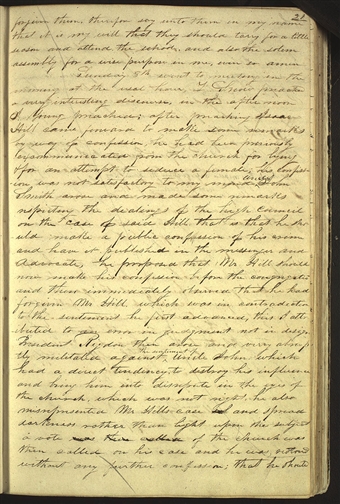 21
forgive them, therefore say unto them in my name
that it is my will that they should tary for a little
season and attend the school, and also the solem
assembly for a wise purpose in me, even so amen
Sunday 8th went to meeting in the
morning at the usual hour, Z. preachd
a very intersting discourse, in the after noon
J. Young preached; after preaching Isaac
Hill came forward to make some remarks
by way of confession, he had been previously
excommunicated from the church for lying
& for an attempt to seduce a female; his confess-
ion was not satisfactory to my mind Uncle John
Smith arose and made some remarks
respecting the dealings of the high council
on the case of said Hill, that is that he sho-
uld make a public confession of his crime
and have it published in the messenger and
Advocate, he proposed that Mr. Hill should
now make his confession before the congregation
and then immediately observed that he had
forgiven Mr. Hill which was in contradiction
to the sentiment he first advanced, this I att-
ibuted to an error in judgment not in design
President Rigdon then arose and very abrup-
tly militated against the sentiment of Uncle John, which
had a direct tendency to destroy his influence
and bring him into disrepute in the eyes of
the church, which was not right, he also
misrepresented Mr. Hills case and spread
darkness rather than light upon the subject
a vote of the church was
then called on his case and he was restored
without any further confession; that he should